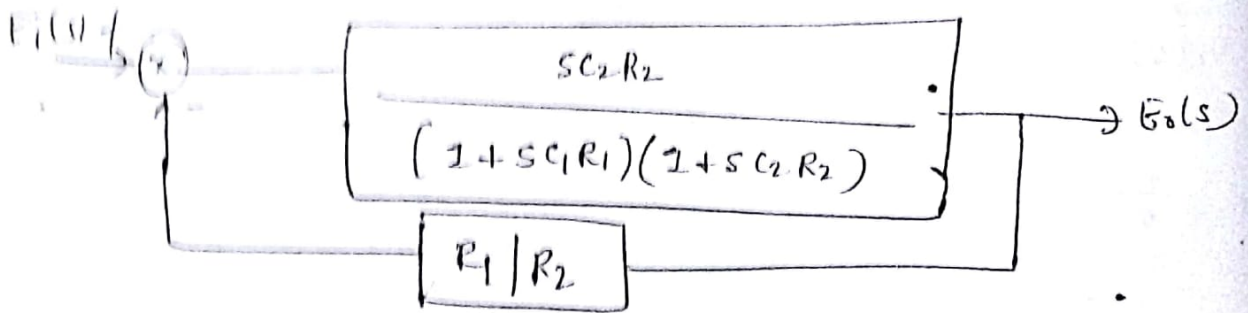 Ei(s)
SC2R2
(1+SC1R1)(1+SC2R2)
E0(s)
R1/R2